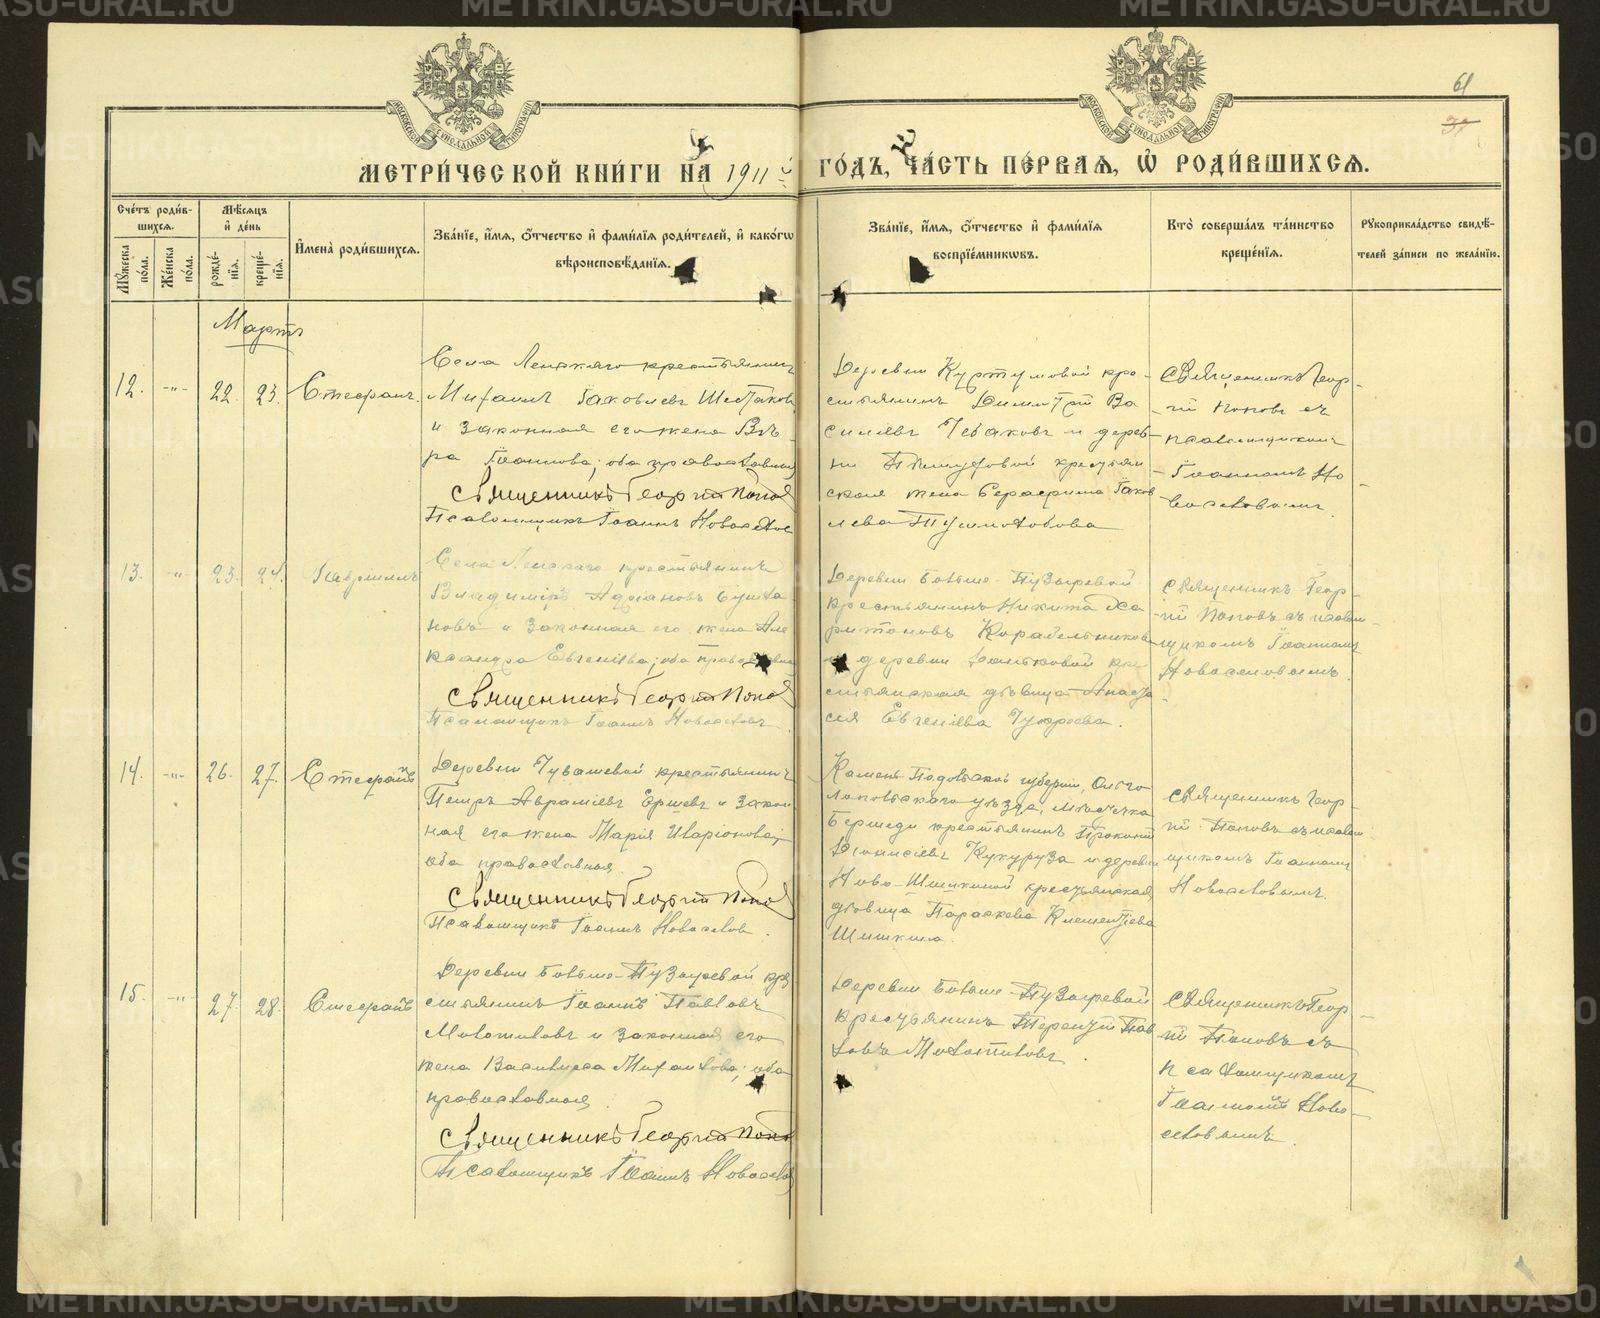 61
37
МЕТРИ́ЧЕСКОЙ КНИ́ГИ НА 1911й ГО́ДЪ, ЧА́СТЬ ПЕ́РВАЯ, Ѡ РОДИ́ВШИХСЯ.
Сче́тъ роди́вшихся.
Мꙋ́жеска по́ла.
Же́нска по́ла.
Мѣ́сяцъ и́ де́нь
рожде́нїя.
креще́нїя.
И҆мена̀ роди́вшихся.
Зва́нїе, и҆́мя, ѻ҆́тчество и҆ фами́лїя роди́телей, и҆ како́гѡ
вѣроисповѣ́данїя.
Зва́нїе, и҆́мя, ѻ҆́тчество и҆ фами́лїя
воспрїе́мниковъ.
Кто̀ соверша́лъ та́инство
креще́нїя.
Рꙋкоприкла́дство свидѣ́-
телей за́писи по жела́нїю.
Мартъ
12. -"- 22. 23. Стефанъ.
Села Ленскаго крестьянинъ
Михаилъ Іаковлевъ Шестаковъ
и законная его жена Вѣ-
ра Іоаннова; оба православны
Священникъ Георгій Попов
Псаломщикъ Іоаннъ Новоселов
Деревни Куртумовой кре-
стьянинъ Димитрій Ва-
силіевъ Чебаковъ и дерев-
ни крестьян-
ская жена Серафима Іаков
лева
Священникъ Геор-
гій Поповъ съ
псаломщикомъ
Іоанномъ Но-
воселовымъ.
13. -"- 23. 24. Гавриилъ
Села Ленскаго крестьянинъ
Владиміръ Адріановъ
и законная его жена Але
ксандра Евгеніева; оба православны
Священникъ Георгій Попов
Псаломщикъ Іоаннъ Новоселовъ
Деревни Больше-Пузыревой
крестьянинъ Никита Ха
ритоновъ Корабельников
и деревни крe
стьянская дѣвица Анаста-
сія Евгеніева
Священникъ Геор-
гій Поповъ съ псалом-
щикомъ Іоанномъ
Новоселовымъ.
14. -"- 26. 27. Стефанъ
Деревни Чувашевой крестьянинъ
Петръ Авраміевъ Ершевъ и закон
ная его жена Марія Иларіонова;
оба православныя.
Священникъ Георгій Попов
Псаломщикъ Іоаннъ Новоселов.
Камень-Подольской губерніи, Ольго
польскаго уѣзда, мѣстечка
Бершеди крестьянинъ Прокопій
Діонисіевъ Кукуруза и деревни
Ново-Шишкиной крестьянская
дѣвица Параскева Климентіева
Шишкина.
Священникъ Геор-
гій Поповъ съ псалом
щикомъ Іоанномъ
Новоселовымъ.
15. -"- 27. 28. Стефанъ
Деревни Больше-Пузыревой кре
стьянинъ Іоаннъ Павловъ
Молотиловъ и законная его
жена Василисса Михаилова; оба
православныя.
Священникъ Георгій Попов
Псаломщикъ Іоаннъ Новоселов
Деревни Больше-Пузыревой
крестьянинъ Терентій Пав
ловъ Молотиловъ.
Священникъ Геор-
гій Поповъ съ
псаломщикомъ
Іоанномъ Ново-
селовымъ.
METRIKI.GASO-URAL.RU